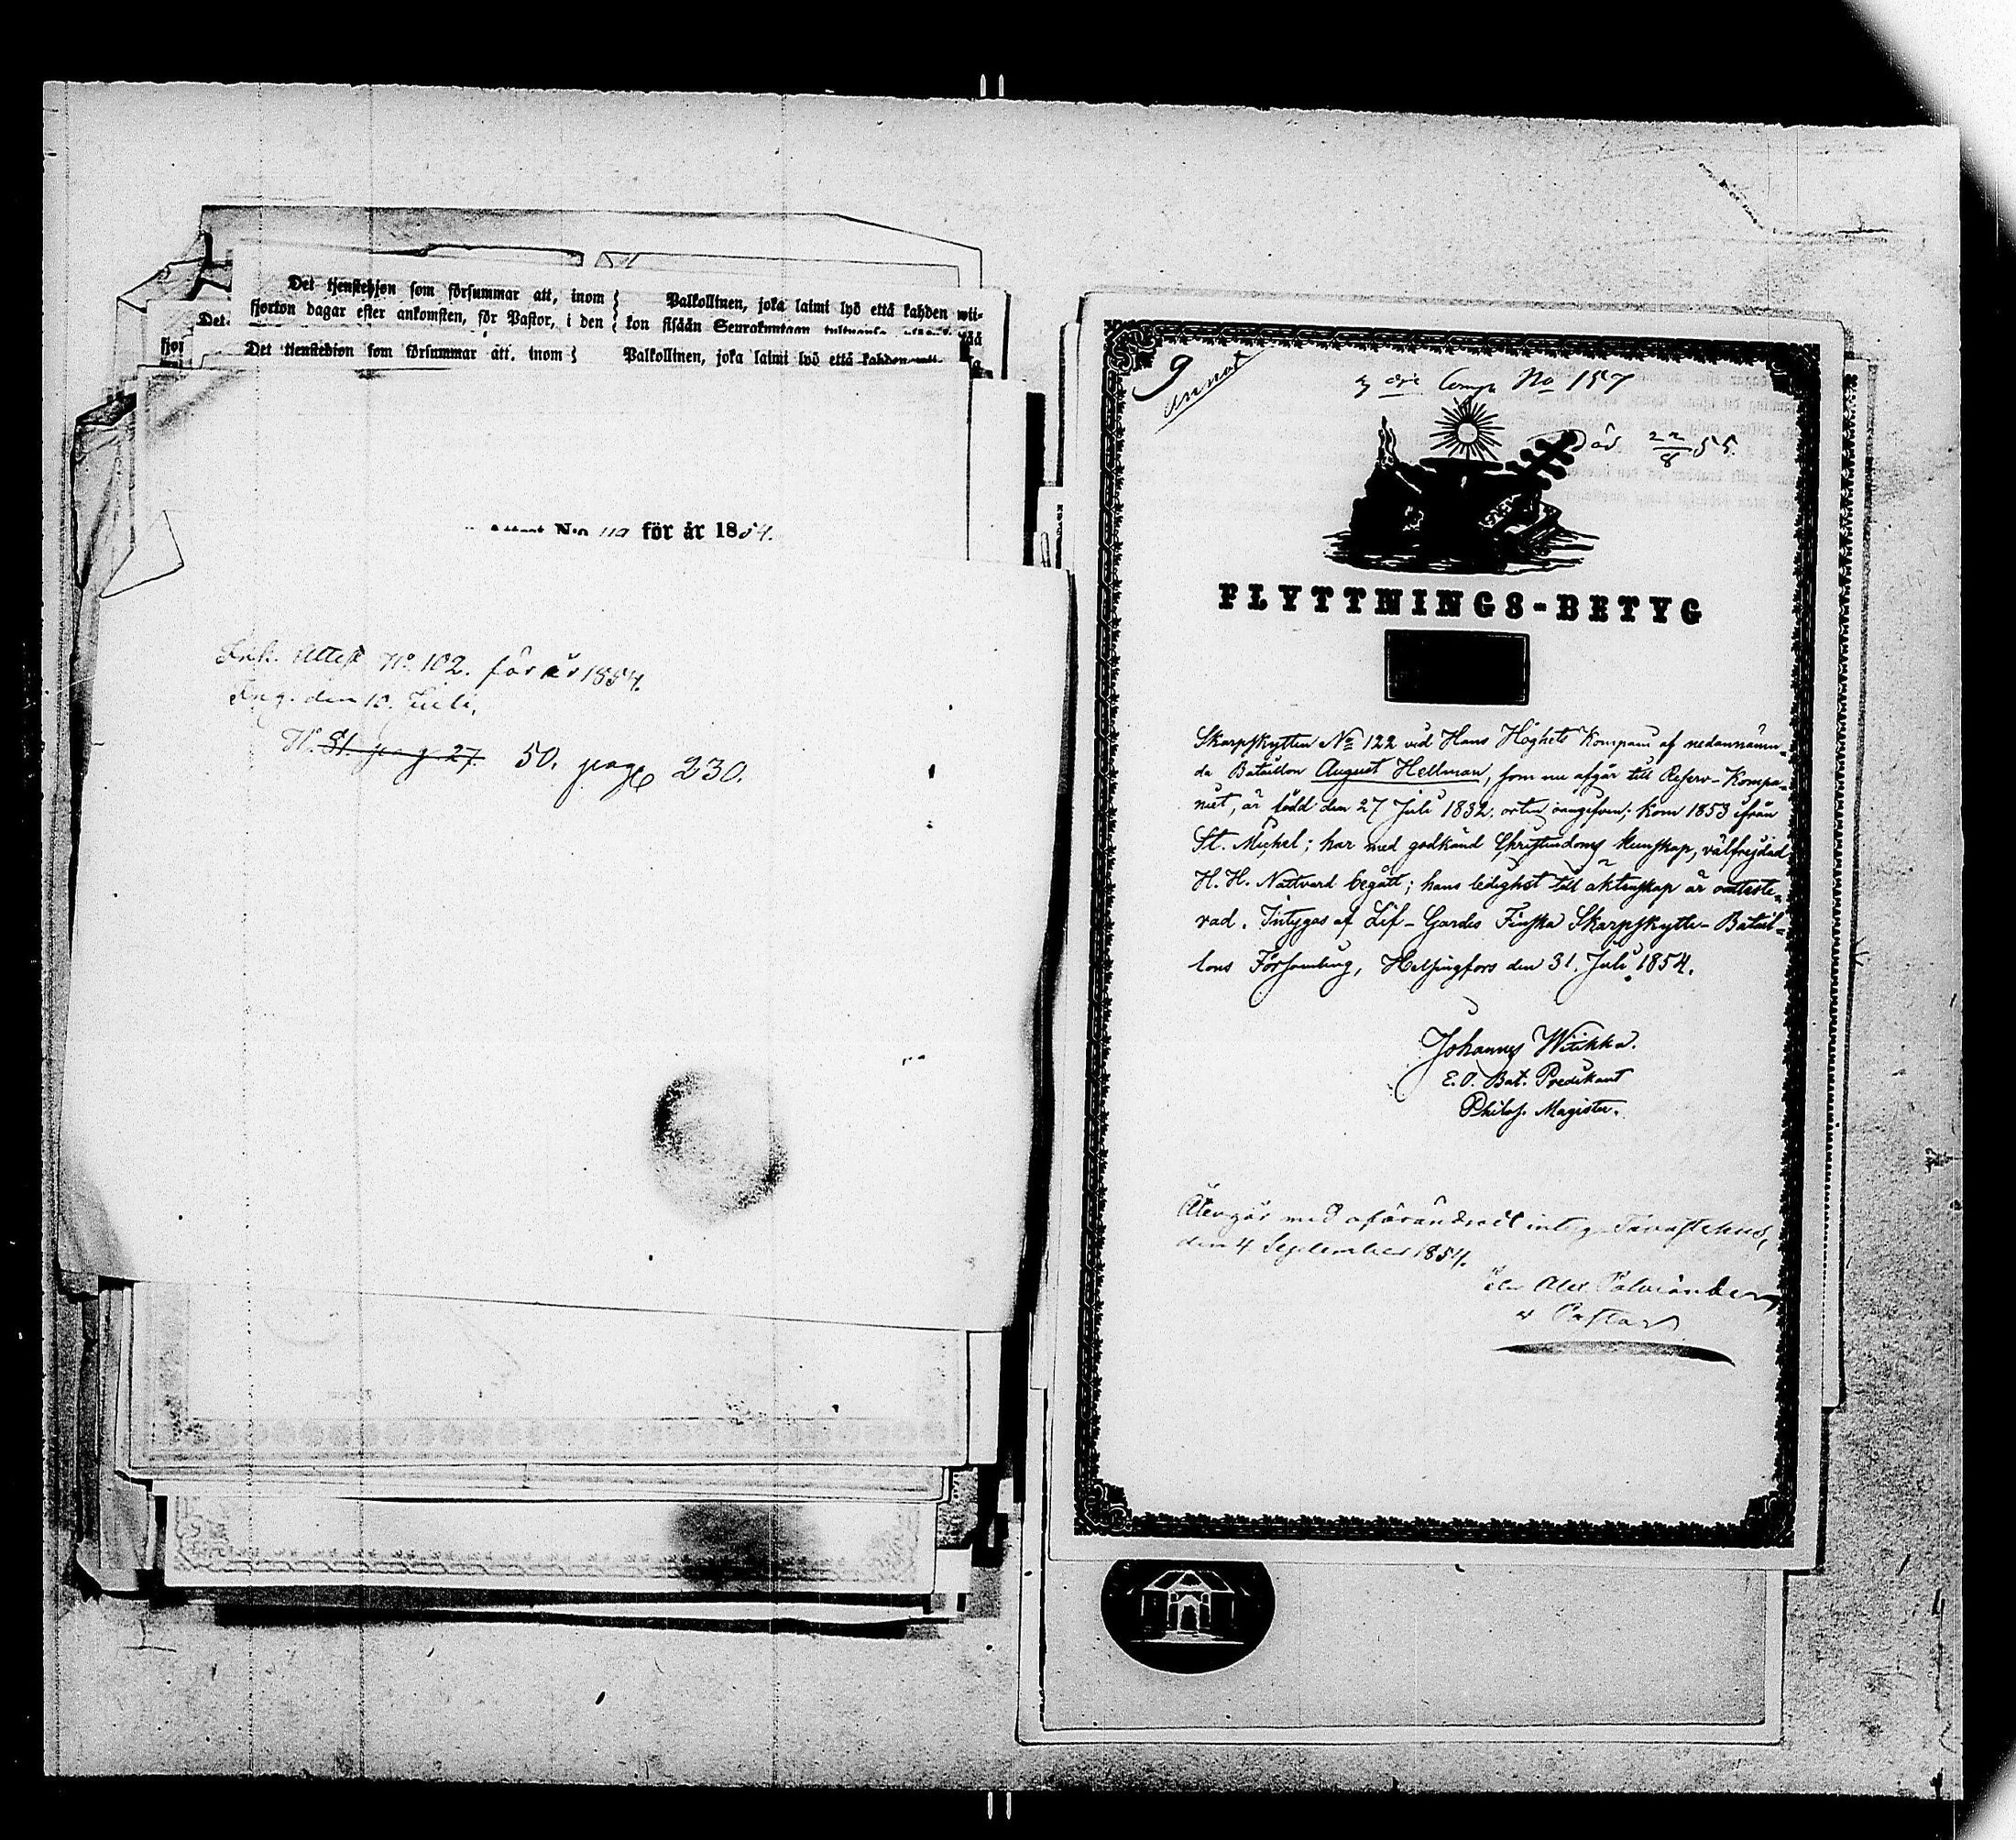 Det tjenstehjon som försummar att, inom
fjorton dagar efter ankomsten, för Pastor, i den
Palkollinen, joka laimi lyö että kahden wii-
kon sisään Seurakunnan
Det
fjor
Det tjenstehjon som försummar att, inom
Palkollinen, joka laimi lyö että kahden
N:o 119 för år 1854.
Ink. Attest No. 102. för år 1854.
Ing. den 10. Juli.
N. 81. pag 27. 50. pag 230.
9
annot
Comp No 157
Död 22/8 55.
FLYTTNINGS-BETYG
Skarpskytten No 122 vid Hans Höghets Kompani af nedannämn-
da Bataillon August Hellman, som nu afgår till Reserv-Kompa-
niet, är född den 27 Juli 1832, orten oangifven; kom 1853 ifrån
St. Michel; har med godkänd Christendoms kunskap, välfrejdad
H. H. Nattvard begått; hans ledighet till äktenskap är oatteste-
rad. Intygas af Lif-Gardes Finska Skarpskytte-Batail-
lons Församling, Helsingfors den 31. Juli 1854.
Johannes Wiikka.
E. O. Bat. Predikant
Philos. Magister.
Återgår med oförändradt intyg Tavastehus,
den 4 September 1854.
Alex. Palmiander
v Pastor